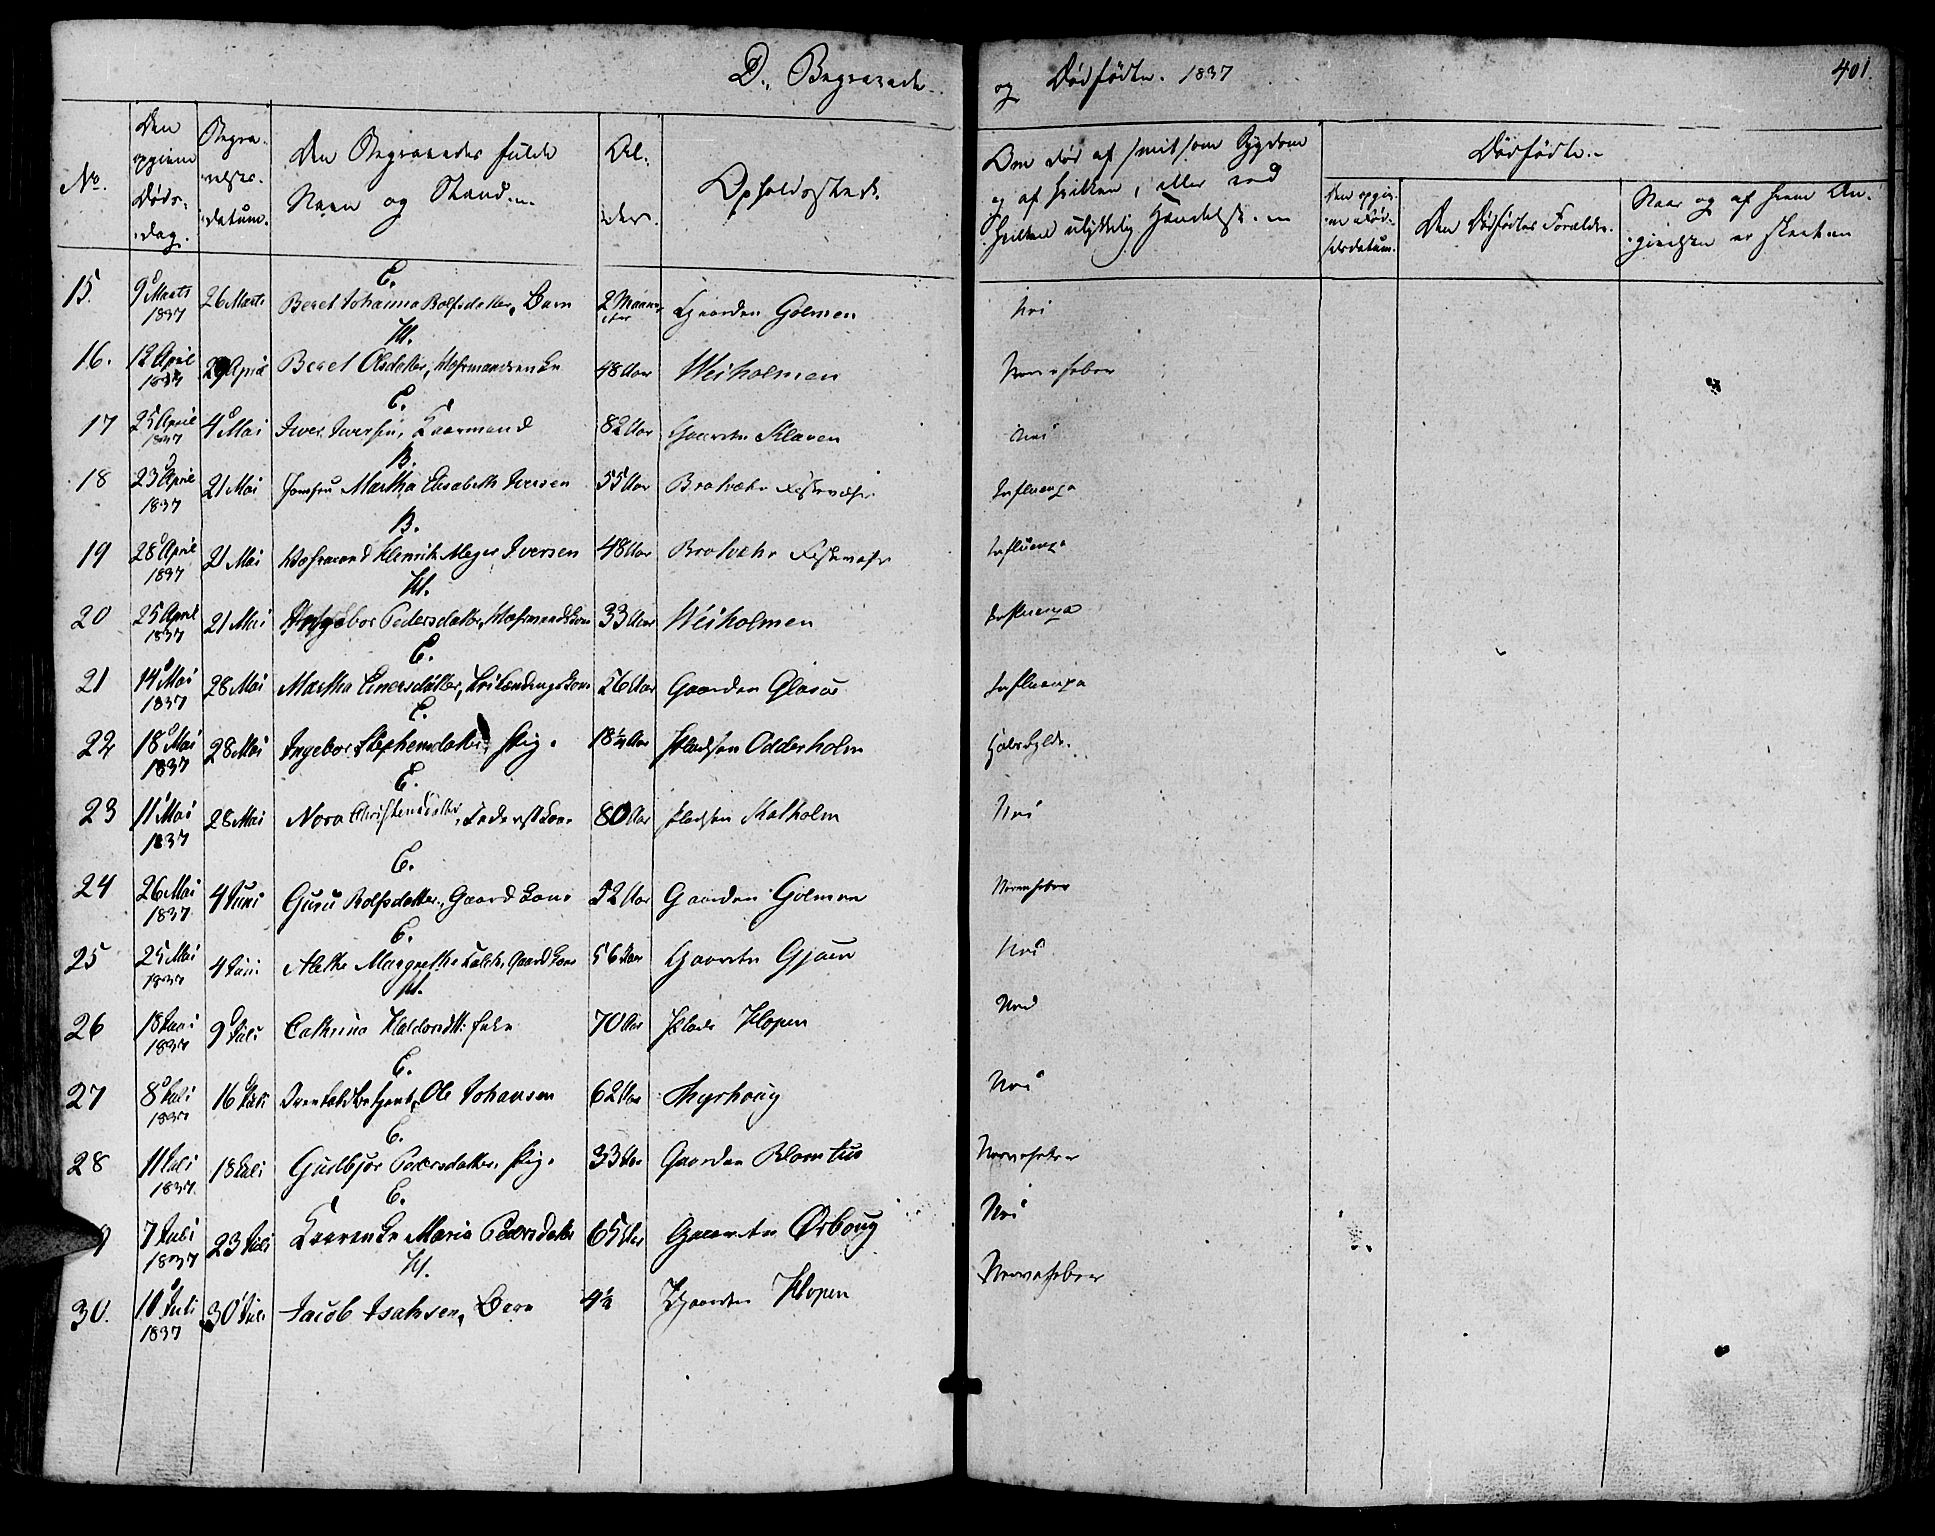 D. Begravede
og Dødfødte. 1837
401.
No.
Den opgivne Døds-dag.
Begra-velses-datum.
Den Begravedes fulde Navn og Stand.
Al-der.
Opholdssted.
Om død af smitsom Sygdom og af hvilken, eller ved hvilken ulykkelig Hændelse.
Dødfødte.
Den opgiv-ne Fød-selsdatum.
Den Dødfødtes Forældre.
Naar og af hvem An-givelsen er skeet.
E.
15. 9d Marts 1837 26 Marts Beret Johanna Rolfsdatter, Barn 2 Maaneder Gaarden Golmen Nei
W.
16. 12 April 1837 29 April Beret Olsdatter, Huusmandsenke 48 Aar Weiholmen Nervefeber
E.
17 25 April 1837 4d Mai Iver Iversen, Kaarmand 82 Aar Gaarden Klaven Nei
B.
18 23d April 1837 21 Mai Jomfru Martha Elisabeth Iversen 55 Aar Bratvær Fiskevær Influenza
B.
19 28d April 1837 21 Mai Huusmand Henrik Meyer Iversen 48 Aar Bratvær Fiskevær Influenza
W.
20 25 April 1837 21 Mai Ingebor Pedersdatter, Huusmandskone 33 Aar Weiholmen Influenza
E.
21 14d Mai 1837 28 Mai Martha Einersdatter, 56 Aar Gaarden Gløsø Influenza
E.
22 18d Mai 1837 28 Mai Ingebor Stephensdatter, Pige. 18½ Aar Pladsen Odderholm Halsbylde.
E.
23 11 Mai 1837 28 Mai Nora Christensdatter, 80 Aar Pladsen Kalholm Nei
E.
24 26 Mai 1837 4 Juni Guru Rolfsdatter, Gaardkone 52 Aar Gaarden Golmen Nervefeber
E.
25 25 Mai 1837 4 Juni Alethe Margrethe Falch, Gaardkone 56 Aar Gaarden Gjøen Nei
W.
26 18 Juni 1837 9d Juli Cathrina Haldorsdtt. Enke 70 Aar Plads Hopen Nei
E.
27 8d Juli 1837 16 Juli Ole Johansen 62 Aar Myrhoug Nei
E.
28 11 Juli 1837 18 Juli Gudbjør Pedersdatter, Pige. 33 Aar Gaarden Blomtuo Nervefeber
E.
7 Juli 1837 23 Juli Kaarenke Maria Pedersdatter 65 Aar Gaarden Ørboug Nei
W.
30. 10d Juli 1837 30 Juli Jacob Isaksen, Barn 4½ Gaarden Hopen Nervefeber